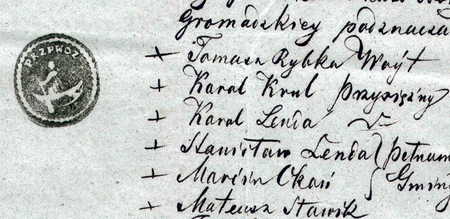 Gromadzkiey podznacza
PRZEWOZ
+ Tomasz Rybka Woyt
+ Karol Krul przysiężny
+ Karol Lenda
+ Stanisław Lenda } pełnom
+ Marcin Okoń } Gminy
+ Mateusz Sławik